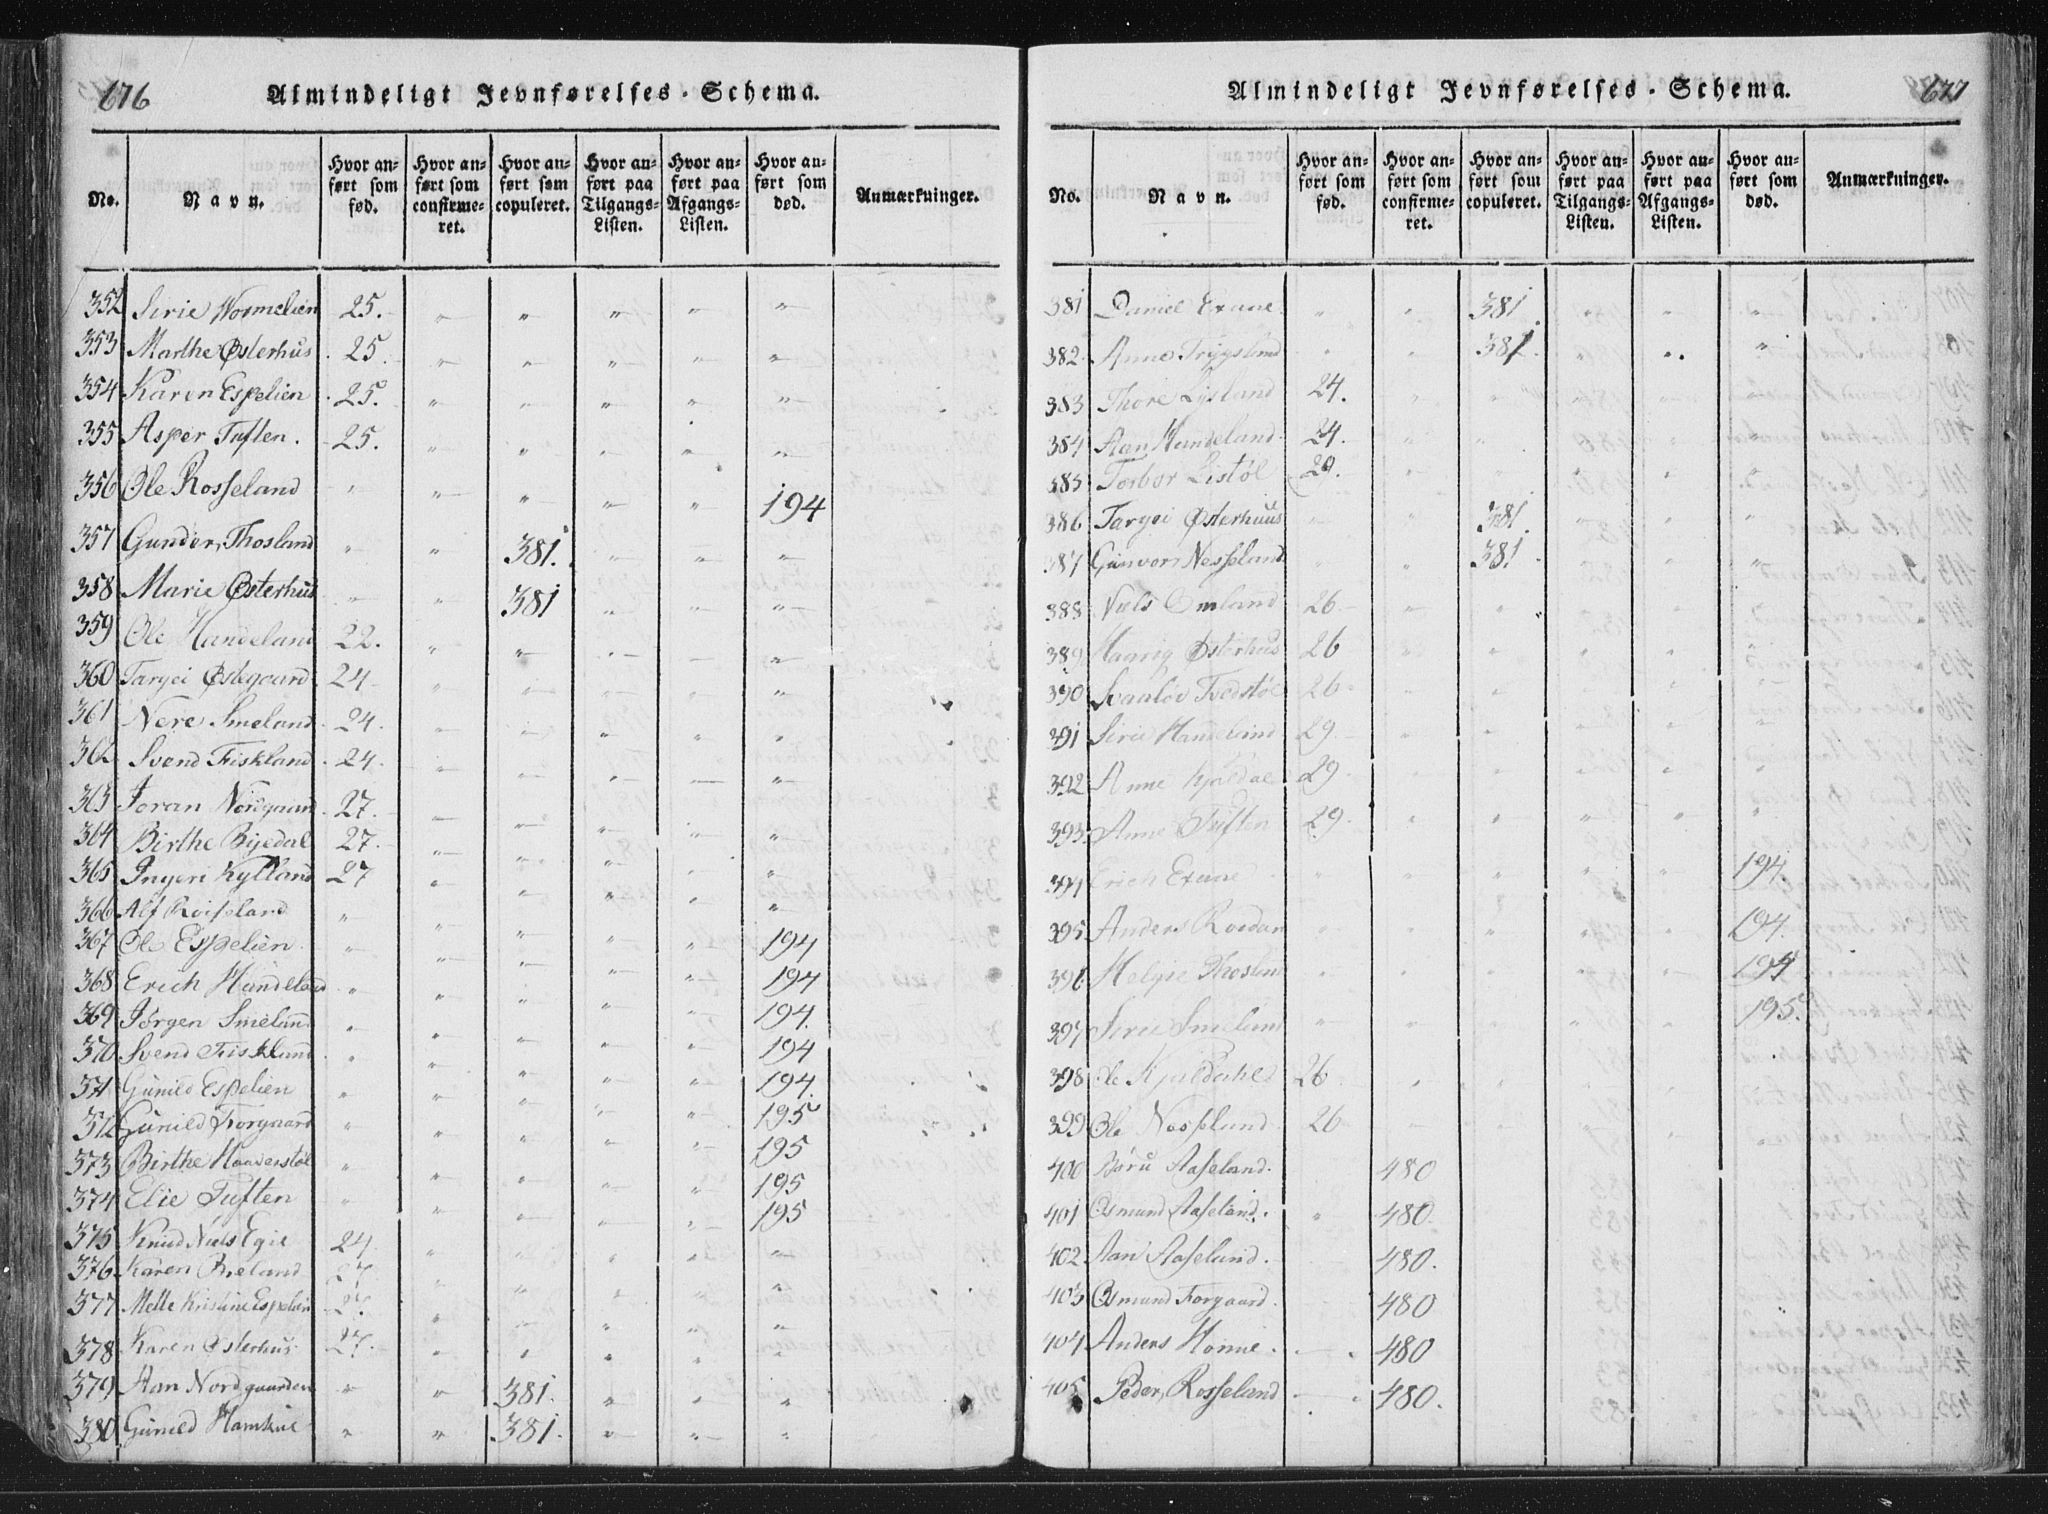 676
Almindeligt Jevnførelses-Schema.
No. Navn. Hvor anført som fød. Hvor anført som confirmeret. Hvor anført som copuleret. Hvor anført paa Tilgangs-Listen. Hvor anført paa Afgangs-Listen. Hvor anført som død. Anmærkninger.
352 Sirie Wormelien 25. " " " " "
353 Marthe Østerhus 25. " " " " "
354 Karen Espelien 25. " " " " "
355 Asper Tuften. 25. " " " " "
356 Ole Rosseland " " " " " 194
357 Gunder Thosland " " 381. " " "
358 Marie Østerhus " " 381 " " "
359 Ole Handeland 22. " " " " "
360 Taryei Østegaard 24 " " " " "
361 Nere Smeland 24. " " " " "
362 Svend Fiskland 24. " " " " "
363 Joran Nordgaard 27. " " " " "
364 Birthe Byedal 27. " " " " "
365 Ingeri Kylland 27 " " " " "
366 Alf Roiseland " " " " "
367 Ole Espelien " " " " " 194
368 Erich Handeland " " " " " 194
369 Jørgen Smeland " " " " " 194.
370 Svend Fiskland " " " " " 194
371 Gunild Espelien " " " " " 194.
372 Gunild Forgaard " " " " " 195
373 Birthe Haaverstøl " " " " " 195
374 Elie Tuften " " " " " 195
195
375 Knud Niels Egie 24 " " " " "
376 Karen Bieland 27 " " " " "
377 Mette Kristine Espelien 27. " " " " "
378 Karen Østerhus 27. " " " " "
379 Aan Nordgaarden " " 381. " " "
380 Gunild Hamkiil " " 381. " " "
677
Almindeligt Jevnførelses-Schema.
No. Navn. Hvor anført som fød. Hvor anført som confirmeret. Hvor anført som copuleret. Hvor anført paa Tilgangs-Listen. Hvor anført paa Afgangs-Listen. Hvor anført som død. Anmærkninger.
381 Daniel Exaae " " 381 " " "
382 Anne Trygsland " " 381. " " "
383 Thore Lysland 24. " " " " "
384 Aan Handeland 24. " " " " "
385 Torbor Listøl 29. " " " " "
386 Taryei Østerhuus " " 381 " " "
387 Gunvor Nesseland " " 381 " " "
388 Niels Omland 26 " " " " "
389 Haavig Østerhus 26 " " " " "
390 Svaaløv Tvedstøl 26 " " " " "
391 Sirie Handeland 29. " " " " "
392 Anne Kjaldal 29. " " " " "
393 Anne Tuften 29. " " " " "
394 Erich Exaae " " " " " 194
395 Anders Roedan " " " " " 194.
396 Helgie Thosland " " " " " 194
397 Sirie Smeland " " " " " 195.
398 Ole Kjaldahl 26 " " " " "
399 Ole Nosseland 26 " " " " "
400 Børu Aaseland. 480
401 Osmund Aaseland. " 480.
402 Aan Aaseland. 480.
403 Osmund Forgaard. 480
404 Anders Homme. 480
405 Peder Rosseland 480.